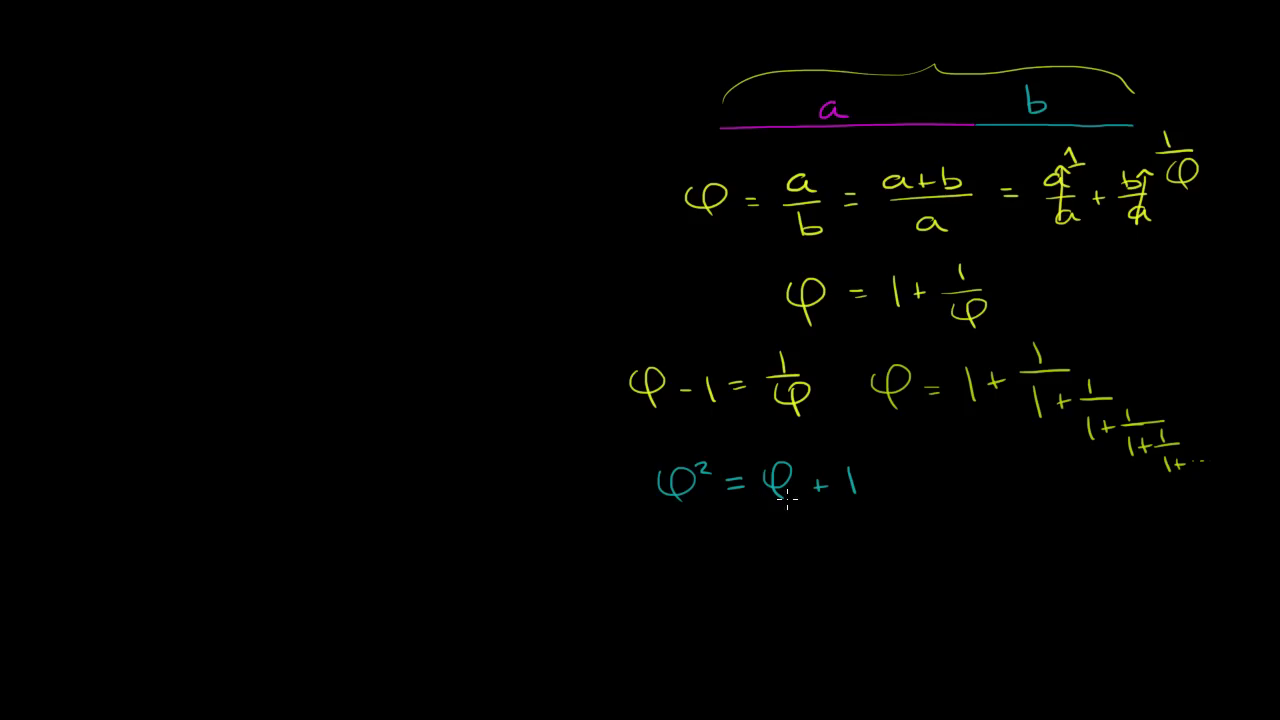 a b
φ = a/b = (a+b)/a = a/a^1 + b/a^(1/φ)
φ = 1 + 1/φ
φ - 1 = 1/φ φ = 1 + 1/(1 + 1/(1 + 1/(1 + 1/(1 + ...
φ² = φ + 1